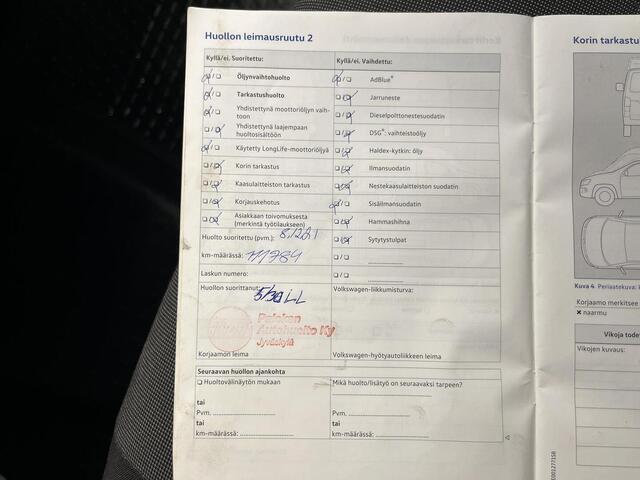 Huollon leimausruutu 2
Kyllä/ei. Suoritettu:
Kyllä/ei. Vaihdettu:
Öljynvaihtohuolto
AdBlue®
Tarkastushuolto
Jarruneste
Yhdistettynä moottoriöljyn vaih-
toon
Dieselpolttonestesuodatin
Yhdistettynä laajempaan
huoltosisältöön
DSG®: vaihteistoöljy
Käytetty LongLife-moottoriöljyä
Haldex-kytkin: öljy
Korin tarkastus
Ilmansuodatin
Kaasulaitteiston tarkastus
Nestekaasulaitteiston suodatin
Korjauskehotus
Sisäilmansuodatin
Asiakkaan toivomuksesta
(merkintä työtilaukseen)
Hammashihna
Huolto suoritettu (pvm.):
Sytytystulpat
km-määrässä:
Laskun numero:
Huollon suorittanut:
5/30 LL
Volkswagen-liikkumisturva:
Autohuolto Ky
Jyväskylä
Korjaamon leima
Volkswagen-hyötyautoliikkeen leima
Seuraavan huollon ajankohta
Huoltovälinäytön mukaan
Mikä huolto/lisätyö on seuraavaksi tarpeen?
tai
tai
Pvm.
Pvm.
tai
tai
km-määrässä:
km-määrässä:
Korin tarkastu
Kuva 4 Periaatekuva:
Korjaamo merkitsee
× naarmu
Vikoja tode
Vikojen kuvaus: